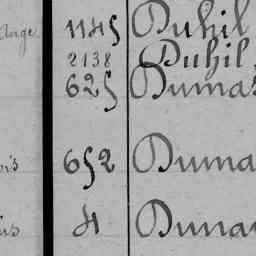 Ange 1145 Duhil
2138 Duhil
625 Dumas
652 Duma
4 Duna